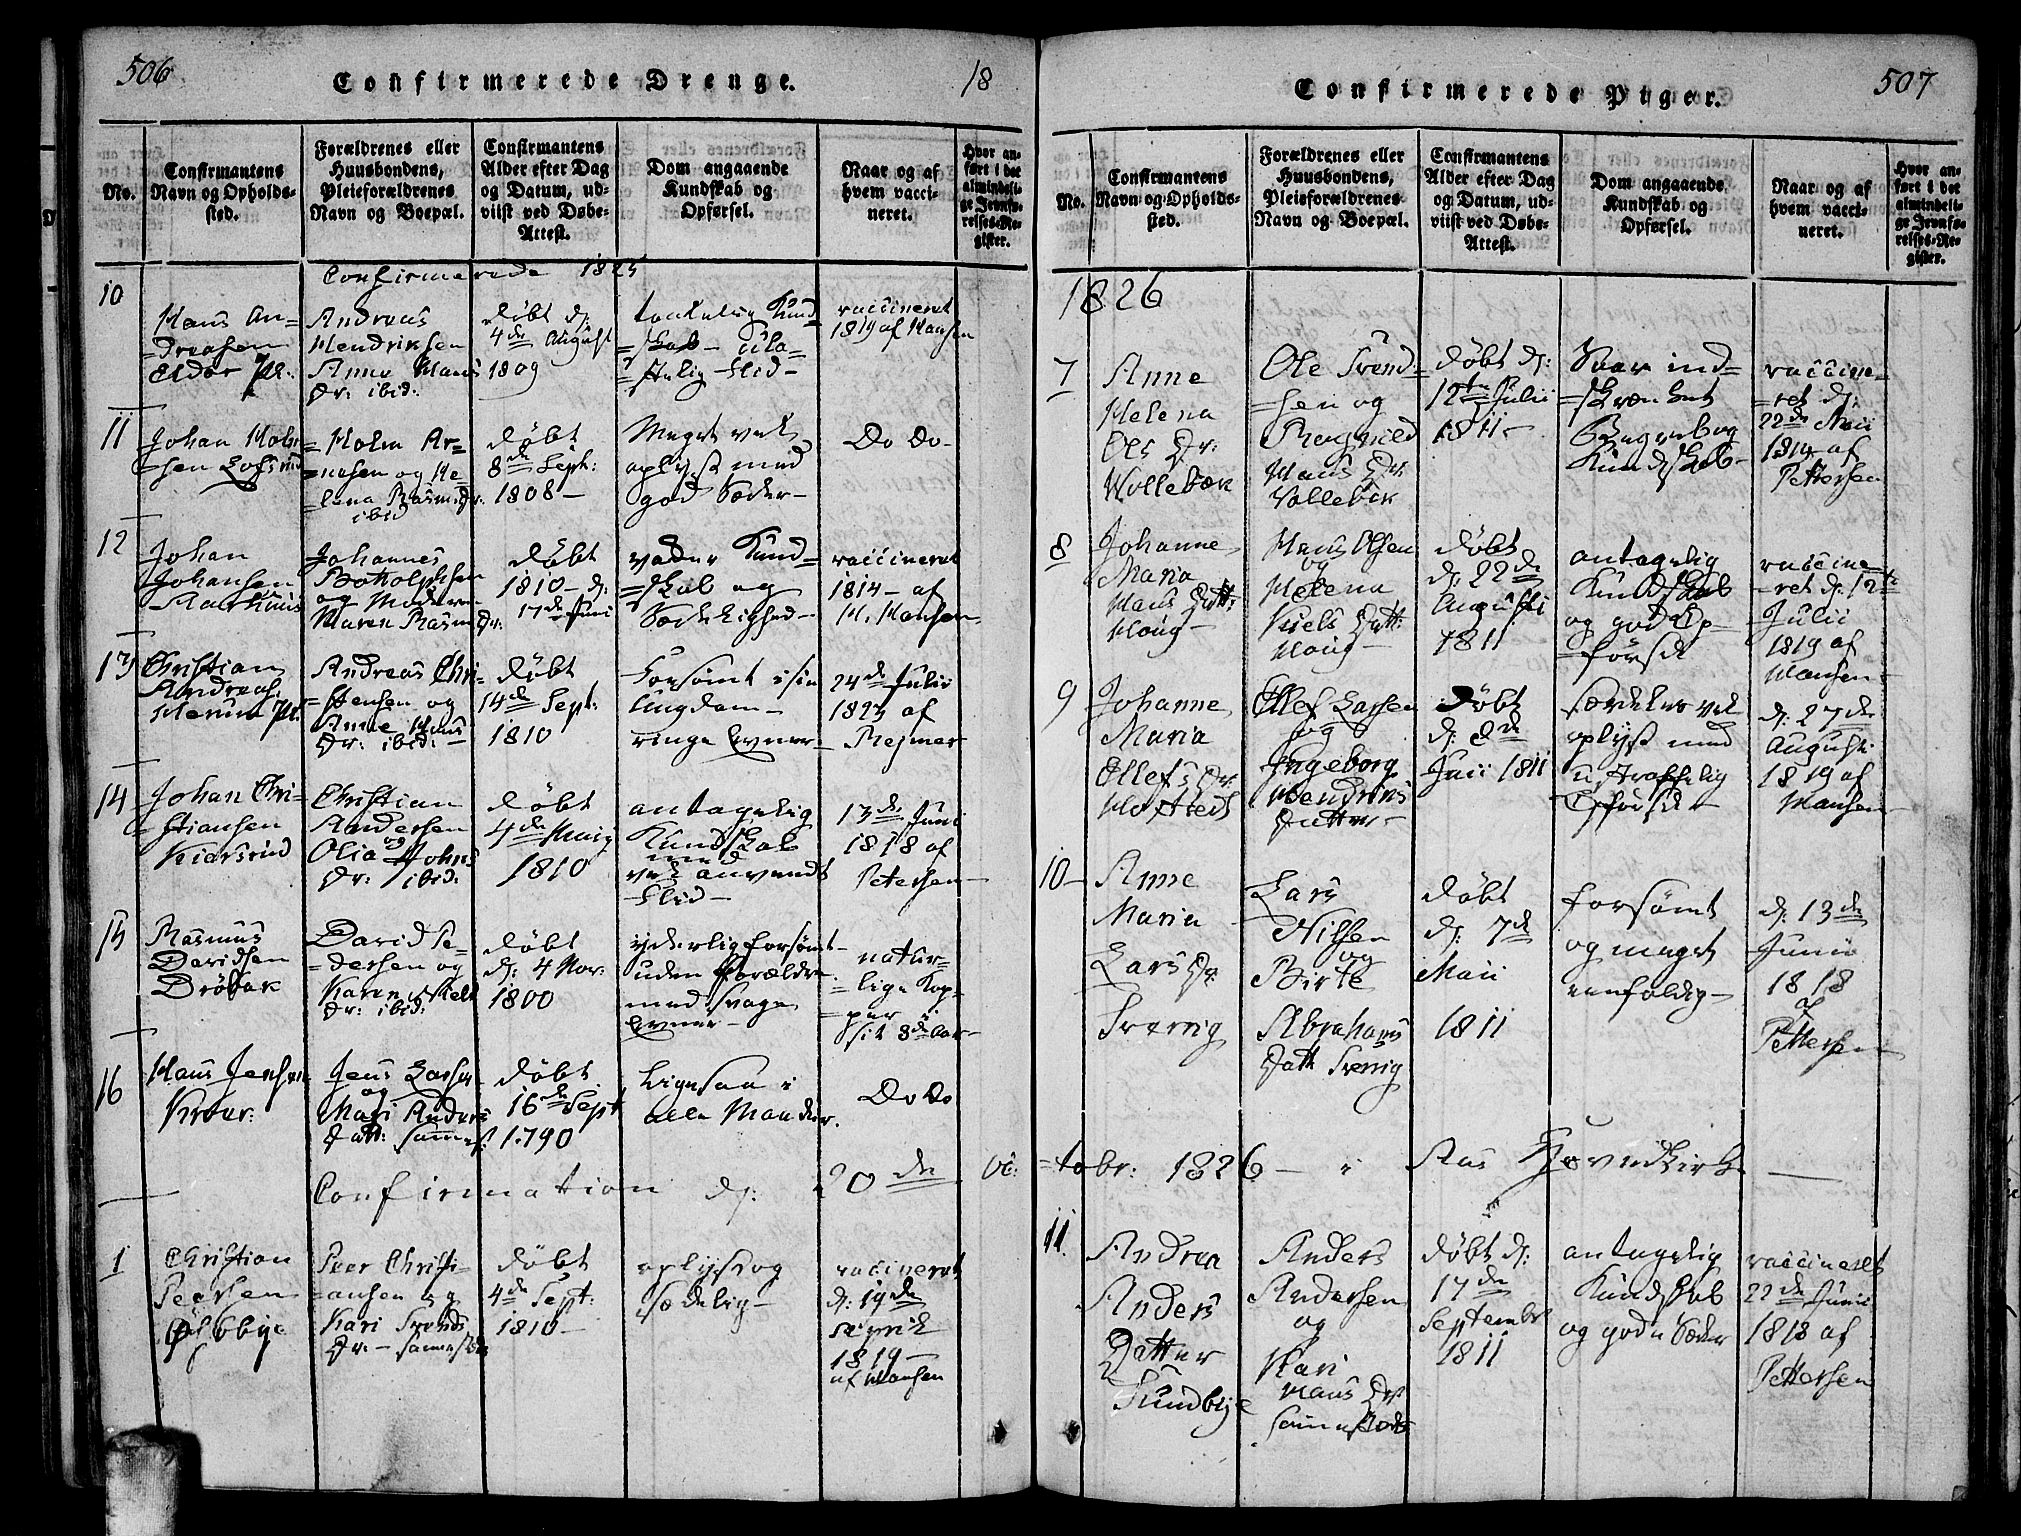 506
Confirmerede Drenge.
18
No.
Confirmantens
Navn og Opholds-
sted.
Forældrenes eller
Huusbondens,
Pleieforældrenes
Navn og Boepæl.
Confirmantens
Alder efter Dag
og Datum, ud-
viist ved Døbe-
Attest.
Dom angaaende
Kundskab og
Opførsel.
Naar og af
hvem vacci-
neret.
Hvor an-
ført i det
almindeli-
ge Jevnfø-
relses-Re-
gister.
Confirmerede 1825
10
Hans An=
=dreasen
Andreas
Hendriksen
Anne Hans
Dr: ibid:
døbt d:
4de August
1809
Kund=
=skab
Flid-
vaccineret
1819 af Hansen
11
Johan Holm
=sen
=Holm Ar=
=nesen og He=
lena Rasm: Dr:
ibid
døbt
8de Sept:
1808-
Meget vel
oplyst med
god Sæder-
Do Do-
12
Johan
Johansen
Johannes
og
Maren Rasm Dr:
døbt
1810- d:
17de Juni
Kund=
=skab og
Sædelighed-
vaccineret
1814- af
H. Hansen
13
Christian
Andreas
Andreas Chri=
=stensen og
Anne Hans
Dr: ibid:-
døbt
14de Sept:
1810
Forsømt i sin
Ungdom-
ringe Evner-
24de Julii
1823 af
Rejmer
14
Johan Chri=
stiansen
Christian
Andersen
og
Olia Johns
Dr: ibid:
døbt
4de Maij
1810
antagelig
Kundskab
med
vel anvendt
Flid-
13de Juni
1818 af
Petersen-
15
Rasmus
Davidsen
Drøbak
David Pe=
=dersen og
Karen Niels
Dr: ibid:
døbt
d: 4 Nov:
1800
yderlig forsømt-
uden Forældre
med svage
Evner-
natur=
=lige Kop=
=per i
sit 8de Aar-
16
Hans Jensen
Kroer:
Jens Larsen
og
Mari Anders
Datt: samest:
døbt
16de Sept
1790
Ligesaa i
alle Maader.
Do Do
Confirmation d: 20de Oc:
1
Christian
Peersen
Peer Christi=
=ansen og
Kari Svends
Dr:- sammesteds
døbt
4de Sept:
1810-
oplyst og
sædelig-
vaccineret
d: 19de
1819-
af Hansen
Confirmerede Piger.
507
No.
Confirmantens
Navn og Opholds-
sted.
Forældrenes eller
Huusbondens,
Pleieforældrenes
Navn og Boepæl.
Confirmantens
Alder efter Dag
og Datum, ud-
viist ved Døbe-
Attest.
Dom angaaende
Kundskab og
Opførsel.
Naar og af
hvem vacci-
neret.
Hvor an-
ført i det
almindeli-
ge Jevnfø-
relses-Re-
gister.
1826
7
Anne
Helena
Ols Dr:
Vollebæk
Ole Svend=
=sen og
Ragnild
Hans Dr
Vollebek
døbt d:
12te Julii
1811-
Svar ind=
=skrænket
Kundskab-
vaccine=
=ret d:
22de
1819 af
Pettersen
8
Johanne
Maria
Hans Datt:
Houg-
Hans Olsen
og
Helena
Niels Datt:
Houg-
døbt
d: 22de
Augusti
1811
antagelig
Kundskab
og god Op=
=førsel
vaccine=
=ret d: 12te
Julii
1819 af
Hansen-
9
Johanne
Maria
Ellefs Dr
Ellef Larsen
og
Ingeborg
Hendriks
Datter-
døbt
d: 2de
Juii 1811
særdeles vel
oplyst med
ustraffelig
Opførsel-
d: 27de
Augusti
1819 af
Hansen
10-
Anne
Maria
Lars Dr
Svervig
Lars
Nilsen
og
Birte
Abrahams
Datt Svervig
døbt
d: 7de
Maii
1811
forsømt
og meget
eenfoldig-
d: 13de
Junii
1818
af
Pettersen
=tobr: 1826- i Aas Hovedkirke
11
Andrea
Anders
Datter
Sundbye
Anders
Andersen
og
Kari
Hans Dr
sammesteds
døbt d:
17de
Septembr
1811
antagelig
Kundskab
og gode Sæder
vaccineret
22de Junii
1818 af
Pettersen